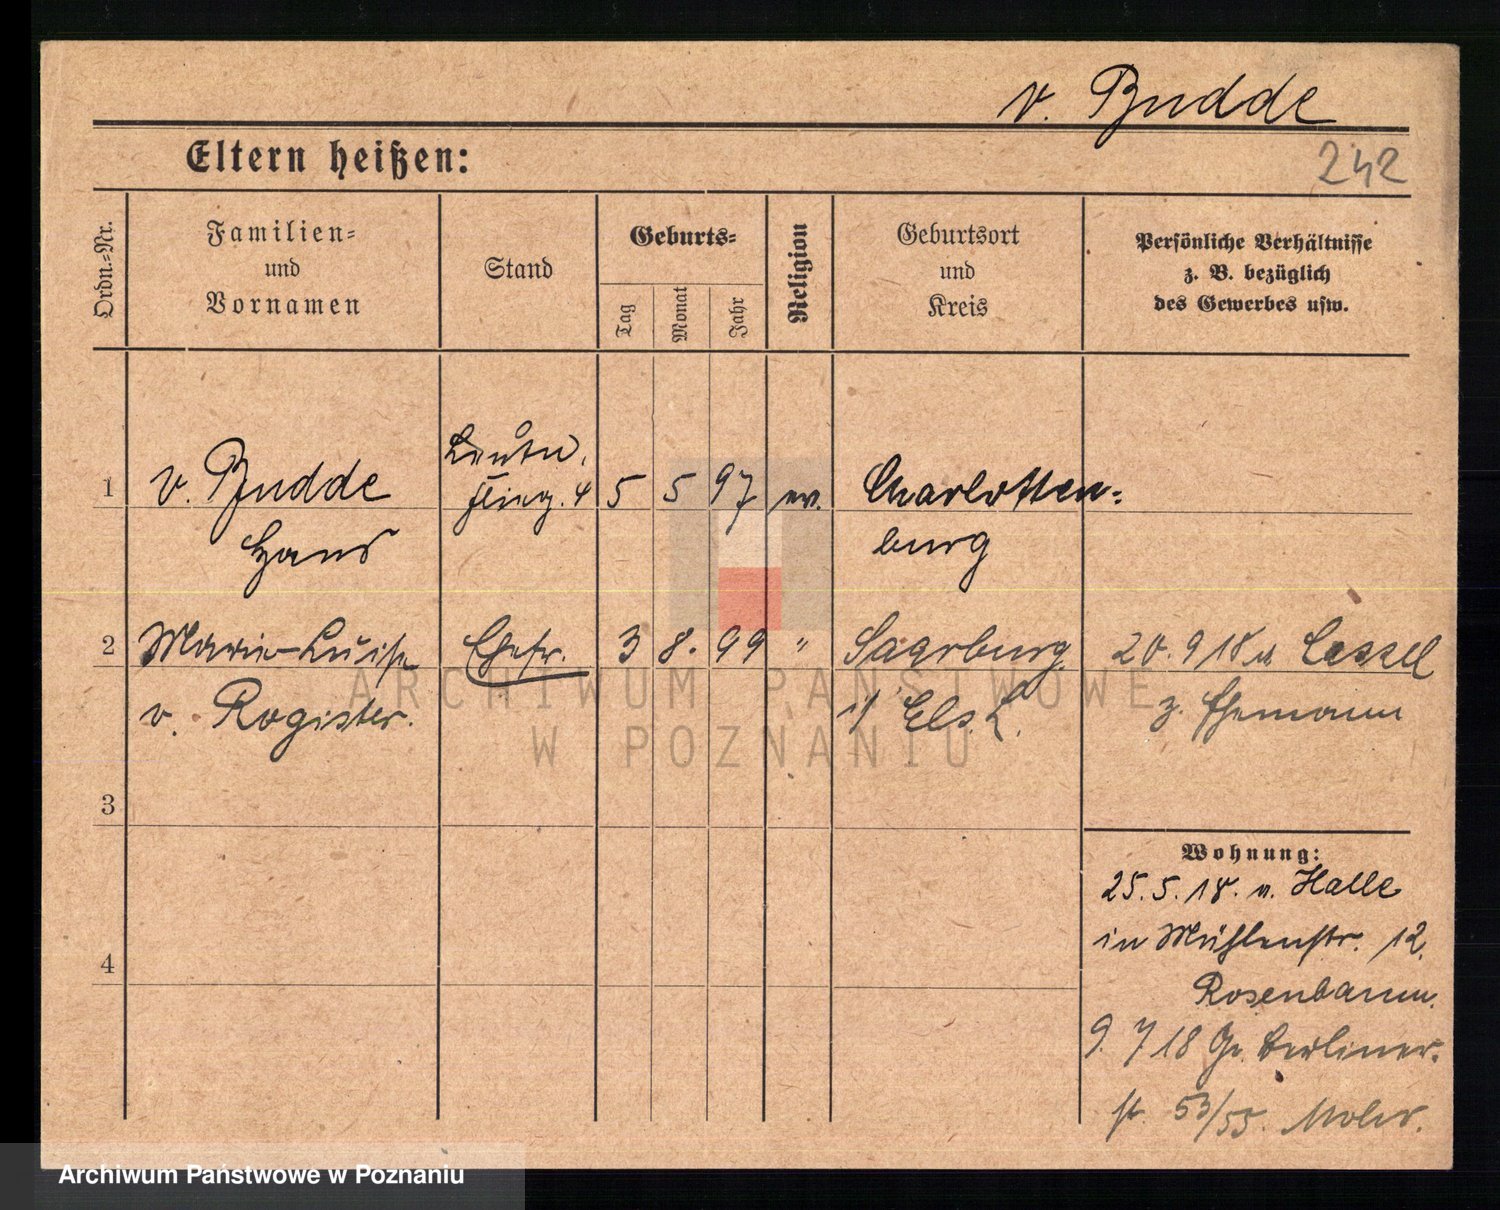 v. Budde
Eltern heißen:
242
Ordn.-Nr.
Familien-
und
Vornamen
Stand
Geburts-
Tag
Monat
Jahr
Religion
Geburtsort
und
Kreis
Persönliche Verhältnisse
z. B. bezüglich
des Gewerbes usw.
1
v. Budde
Hans
Leutn.
flieg. 4
5 5 97 ev.
Charlotten-
burg
2
Marie-Luise
v. Rogister.
Ehefr.
3 8. 99 "
Saarburg
i/ Els. L.
20. 9 18 v. Cassel
z. Ehemann
3
4
Wohnung:
25. 5. 18. v. Halle
in Mühlenstr. 12.
Rosenbaum.
9. 7 18 Gr. Berliner-
str. 53/55.
ARCHIWUM PAŃSTWOWE
W POZNANIU
Archiwum Państwowe w Poznaniu